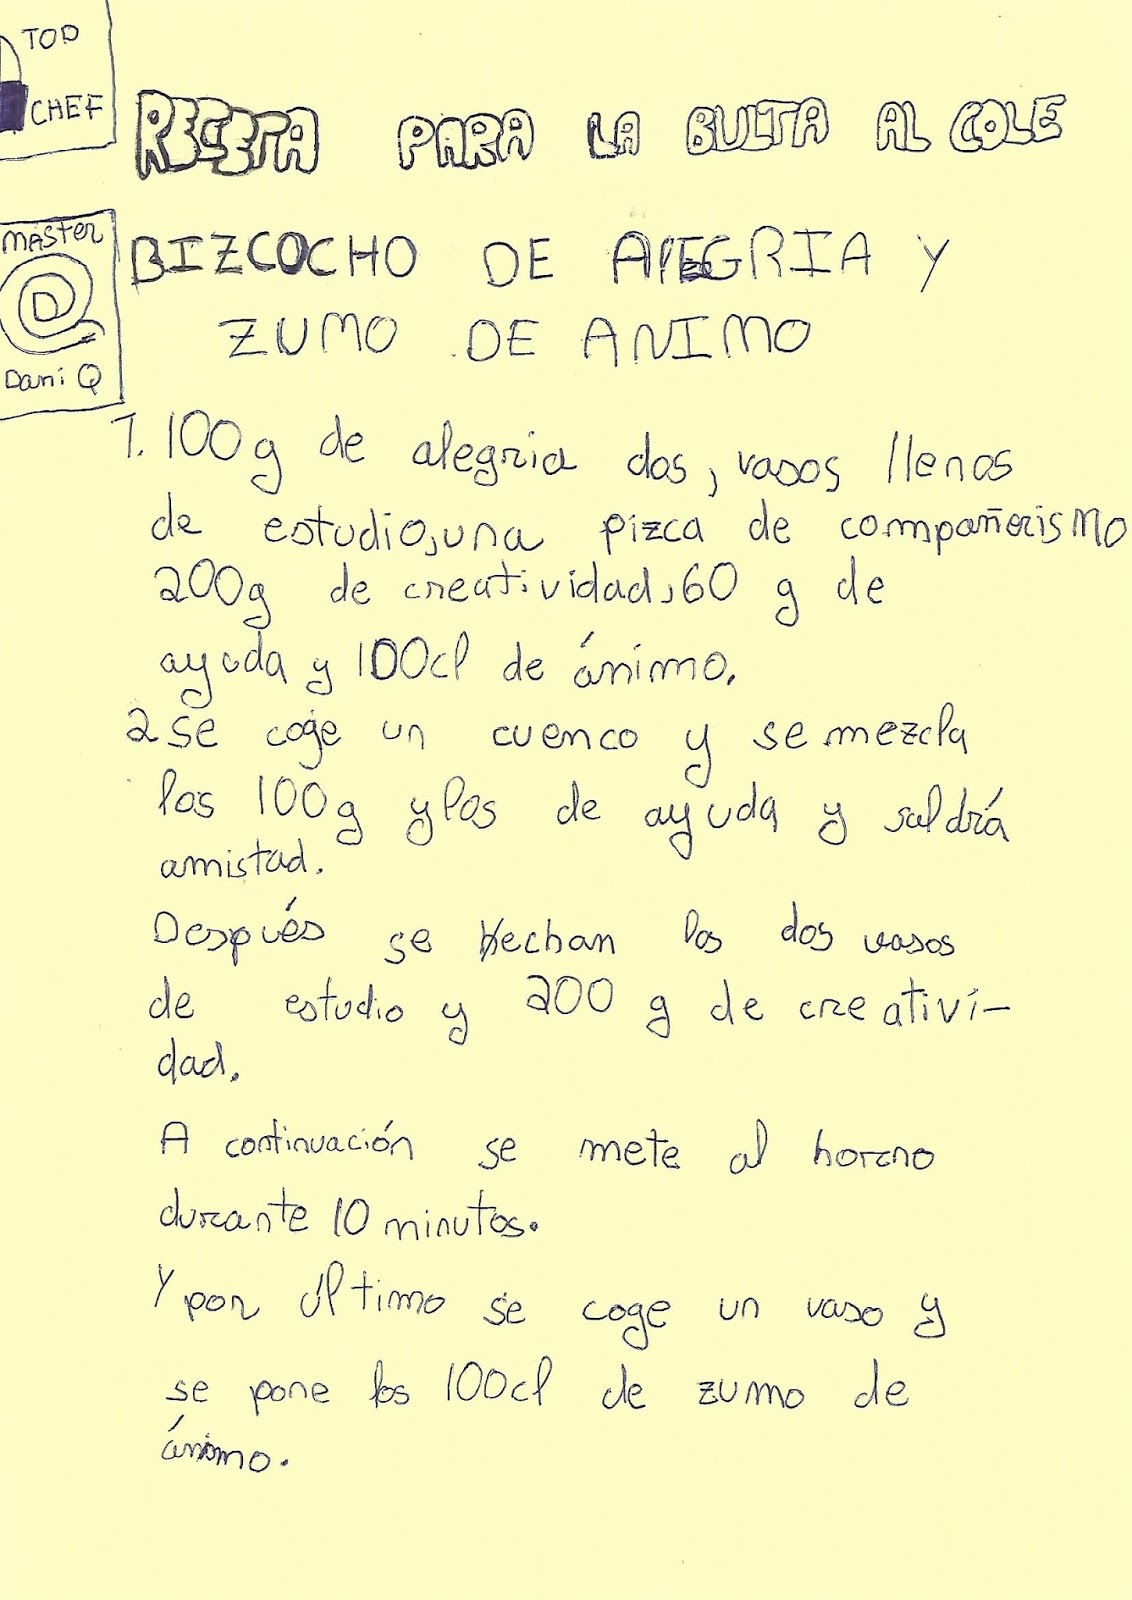 TOP
CHEF
RECETA PARA LA BULTA AL COLE
MASTER
D
Dani Q
BIZCOCHO DE ALEGRIA Y
ZUMO DE ANIMO
1. 100g de alegria dos, vasos llenos
de estudio, una pizca de compañerismo
200g de creatividad, 60 g de
ayuda y 100cl de ánimo.
2 se coge un cuenco y se mezcla
los 100g y los de ayuda y saldrá
amistad.
Después se hechan los dos vasos
de estudio y 200 g de creativi-
dad.
A continuación se mete al horno
durante 10 minutos.
Y por último se coge un vaso y
se pone los 100cl de zumo de
ánimo.